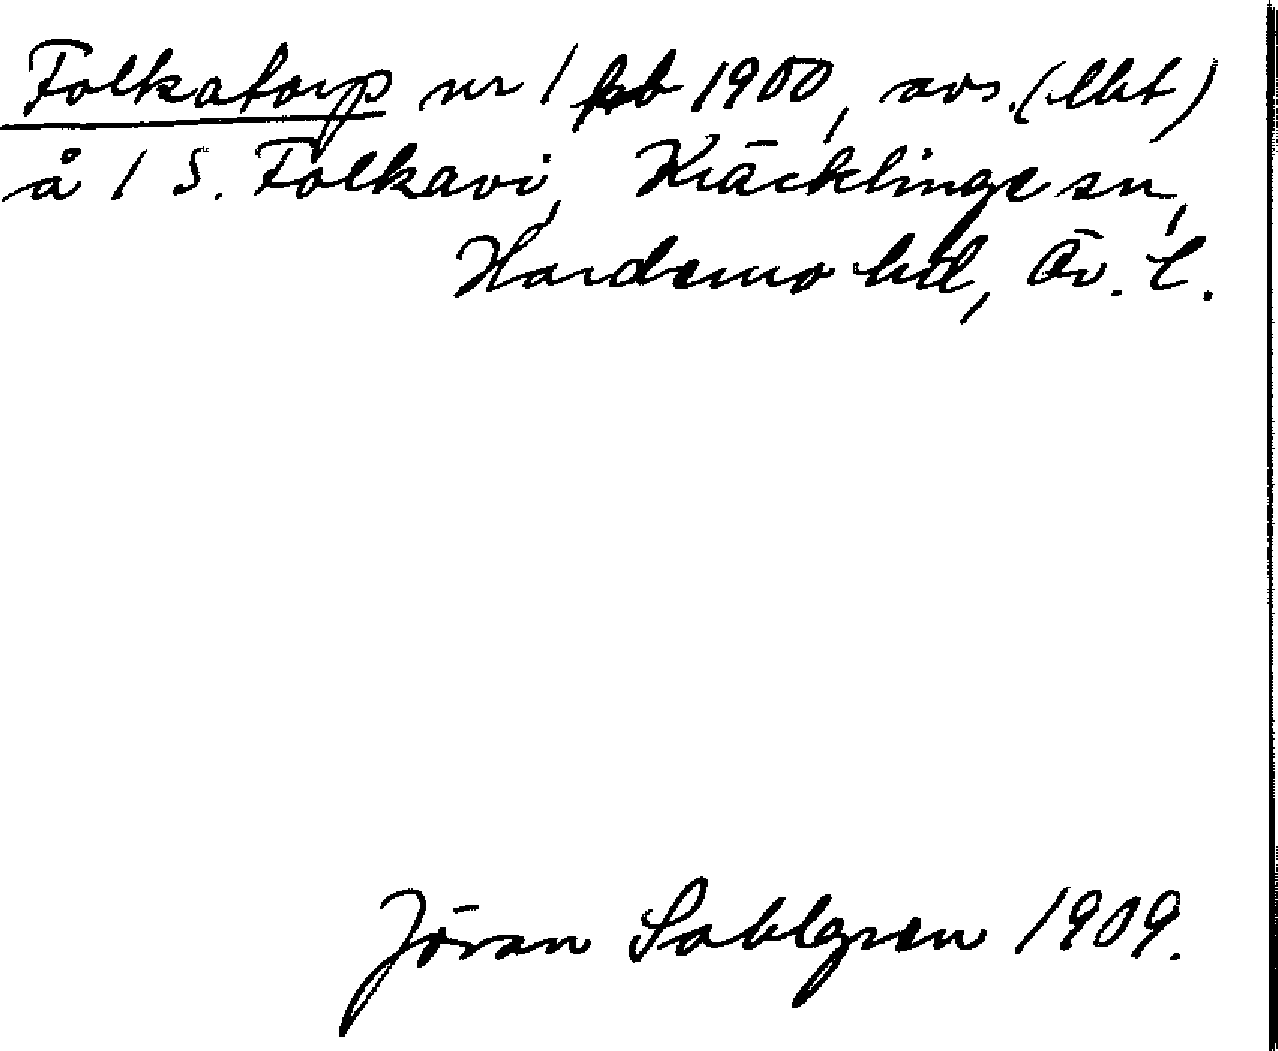 Folkatorp nr 1 jb 1900, avs. (lht)
å 1 S. Folkavi, Kräcklinge sn,
Hardemo hd, Ör. l.
Jöran Sahlgren 1909.